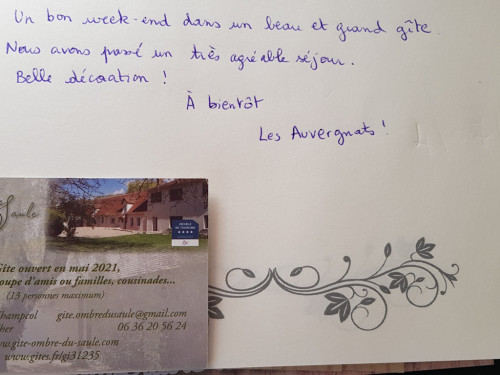 Un bon week-end dans un beau et grand gîte.
Nous avons passé un très agréable séjour.
Belle décoration !
À bientôt
Les Auvergnats !
Saule
Gîte ouvert en mai 2021,
oupe d'amis ou familles, cousinades...
(15 personnes maximum)
hampcol gite.ombredusaule@gmail.com
her 06 36 20 56 24
ww.gite-ombre-du-saule.com
www.gites.fr/gi31235